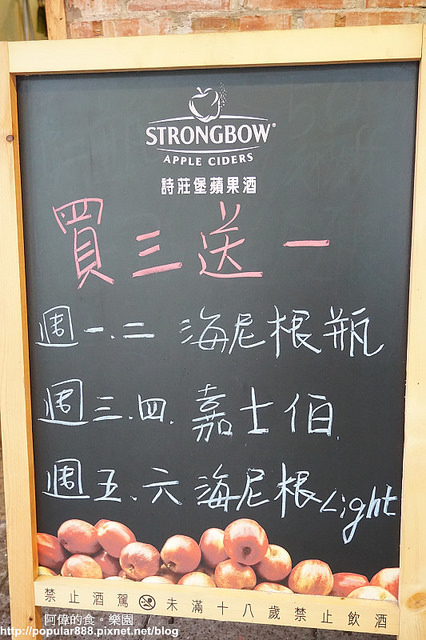 STRONGBOW®
APPLE CIDERS
詩莊堡蘋果酒
買三送一
週一.二 海尼根瓶
週三.四. 嘉士伯
週五.六 海尼根Light
禁止酒駕 未滿十八歲禁止飲酒
阿偉的食。樂園
http://popular888.pixnet.net/blog